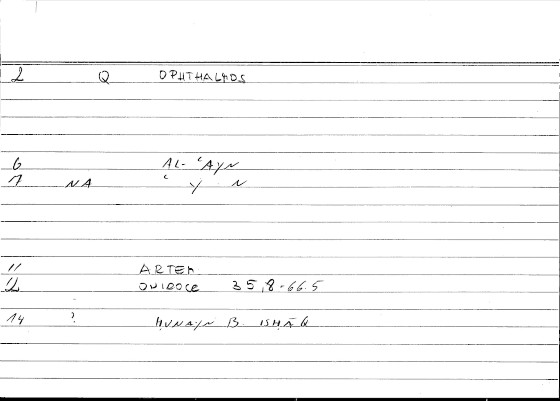 2 Q OPHTHALMOS
6 AL- ʿAYN
7 NA ʿ Y N
11 ARTEM.
12 ONIROCR 35,8-66.5
14 ? ḤUNAYN B. ISḤĀQ